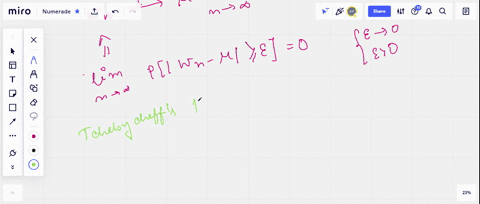 miro Numerade Share
n→∞
lim P[|Wn-μ| ⩾ε] = 0 { ε→0
n→∞ ε>0
Tchebycheff's
23%